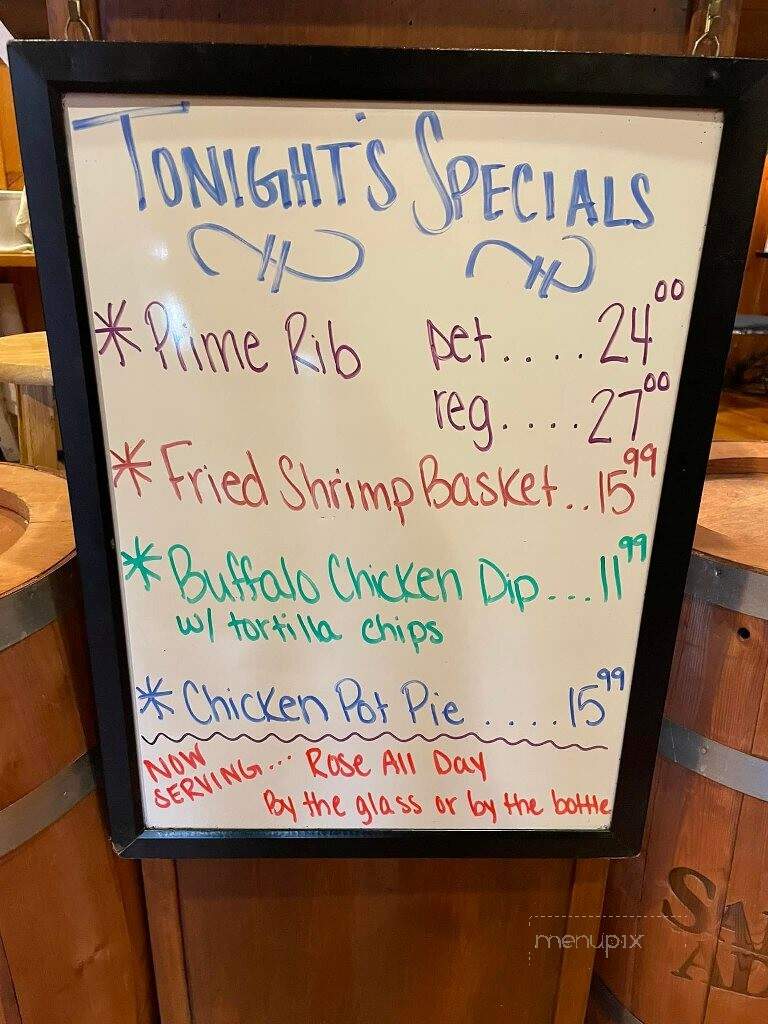 TONIGHT'S SPECIALS
* Prime Rib pet.... 24.00
reg.... 27.00
* Fried Shrimp Basket.. 15.99
* Buffalo Chicken Dip... 11.99
w/ tortilla chips
* Chicken Pot Pie .... 15.99
NOW SERVING... Rose All Day
By the glass or by the bottle
menupix
SA
AD